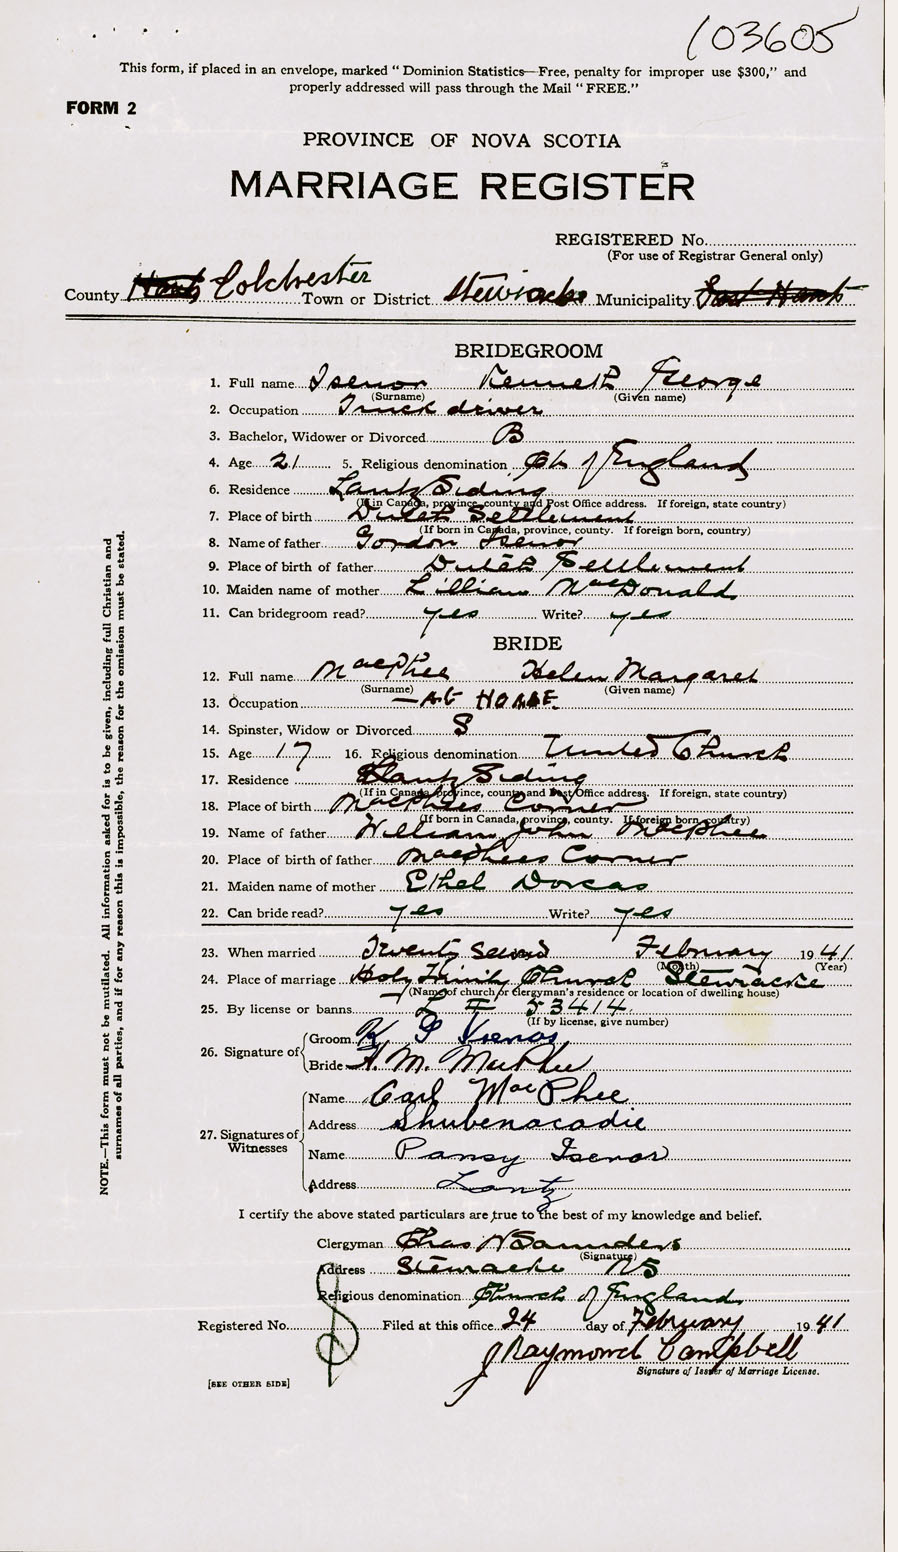 103605
This form, if placed in an envelope, marked "Dominion Statistics—Free, penalty for improper use $300," and
properly addressed will pass through the Mail "FREE."
FORM 2
PROVINCE OF NOVA SCOTIA
MARRIAGE REGISTER
REGISTERED No.
(For use of Registrar General only)
County Hants Colchester Town or District Stewiacke Municipality East Hants
BRIDEGROOM
1. Full name Isenor Kenneth George
(Surname) (Given name)
2. Occupation Truck driver
3. Bachelor, Widower or Divorced B
4. Age 21 5. Religious denomination Ch of England
6. Residence Lantz Siding
(If in Canada, province, county and Post Office address. If foreign, state country)
7. Place of birth Dutch Settlement
(If born in Canada, province, county. If foreign born, country)
8. Name of father Gordon Isenor
9. Place of birth of father Dutch Settlement
10. Maiden name of mother Lillian MacDonald
11. Can bridegroom read? yes Write? yes
BRIDE
12. Full name MacPhee Helen Margaret
(Surname) (Given name)
13. Occupation — At HOME
14. Spinster, Widow or Divorced S
15. Age 17 16. Religious denomination United Church
17. Residence Lantz Siding
(If in Canada, province, county and Post Office address. If foreign, state country)
18. Place of birth MacPhees Corner
(If born in Canada, province, county. If foreign born, country)
19. Name of father William John MacPhee
20. Place of birth of father MacPhees Corner
21. Maiden name of mother Ethel Dorcas
22. Can bride read? yes Write? yes
23. When married Twenty Second February 1941
(Month) (Year)
24. Place of marriage Holy Trinity Church Stewiacke
(Name of church or clergyman's residence or location of dwelling house)
25. By license or banns L # 53414
(If by license, give number)
26. Signature of
Groom K G Isenor
Bride H. M. MacPhee
27. Signatures of Witnesses
Name Carl MacPhee
Address Shubenacadie
Name Pansy Isenor
Address Lantz
I certify the above stated particulars are true to the best of my knowledge and belief.
Clergyman Chas N Saunders
(Signature)
Address Stewiacke NS
Religious denomination Church of England
Registered No. Filed at this office 24 day of February 1941
J Raymond Campbell
Signature of Issuer of Marriage License.
[SEE OTHER SIDE]
NOTE.—This form must not be mutilated. All information asked for is to be given, including full Christian and
surnames of all parties, and if for any reason this is impossible, the reason for the omission must be stated.